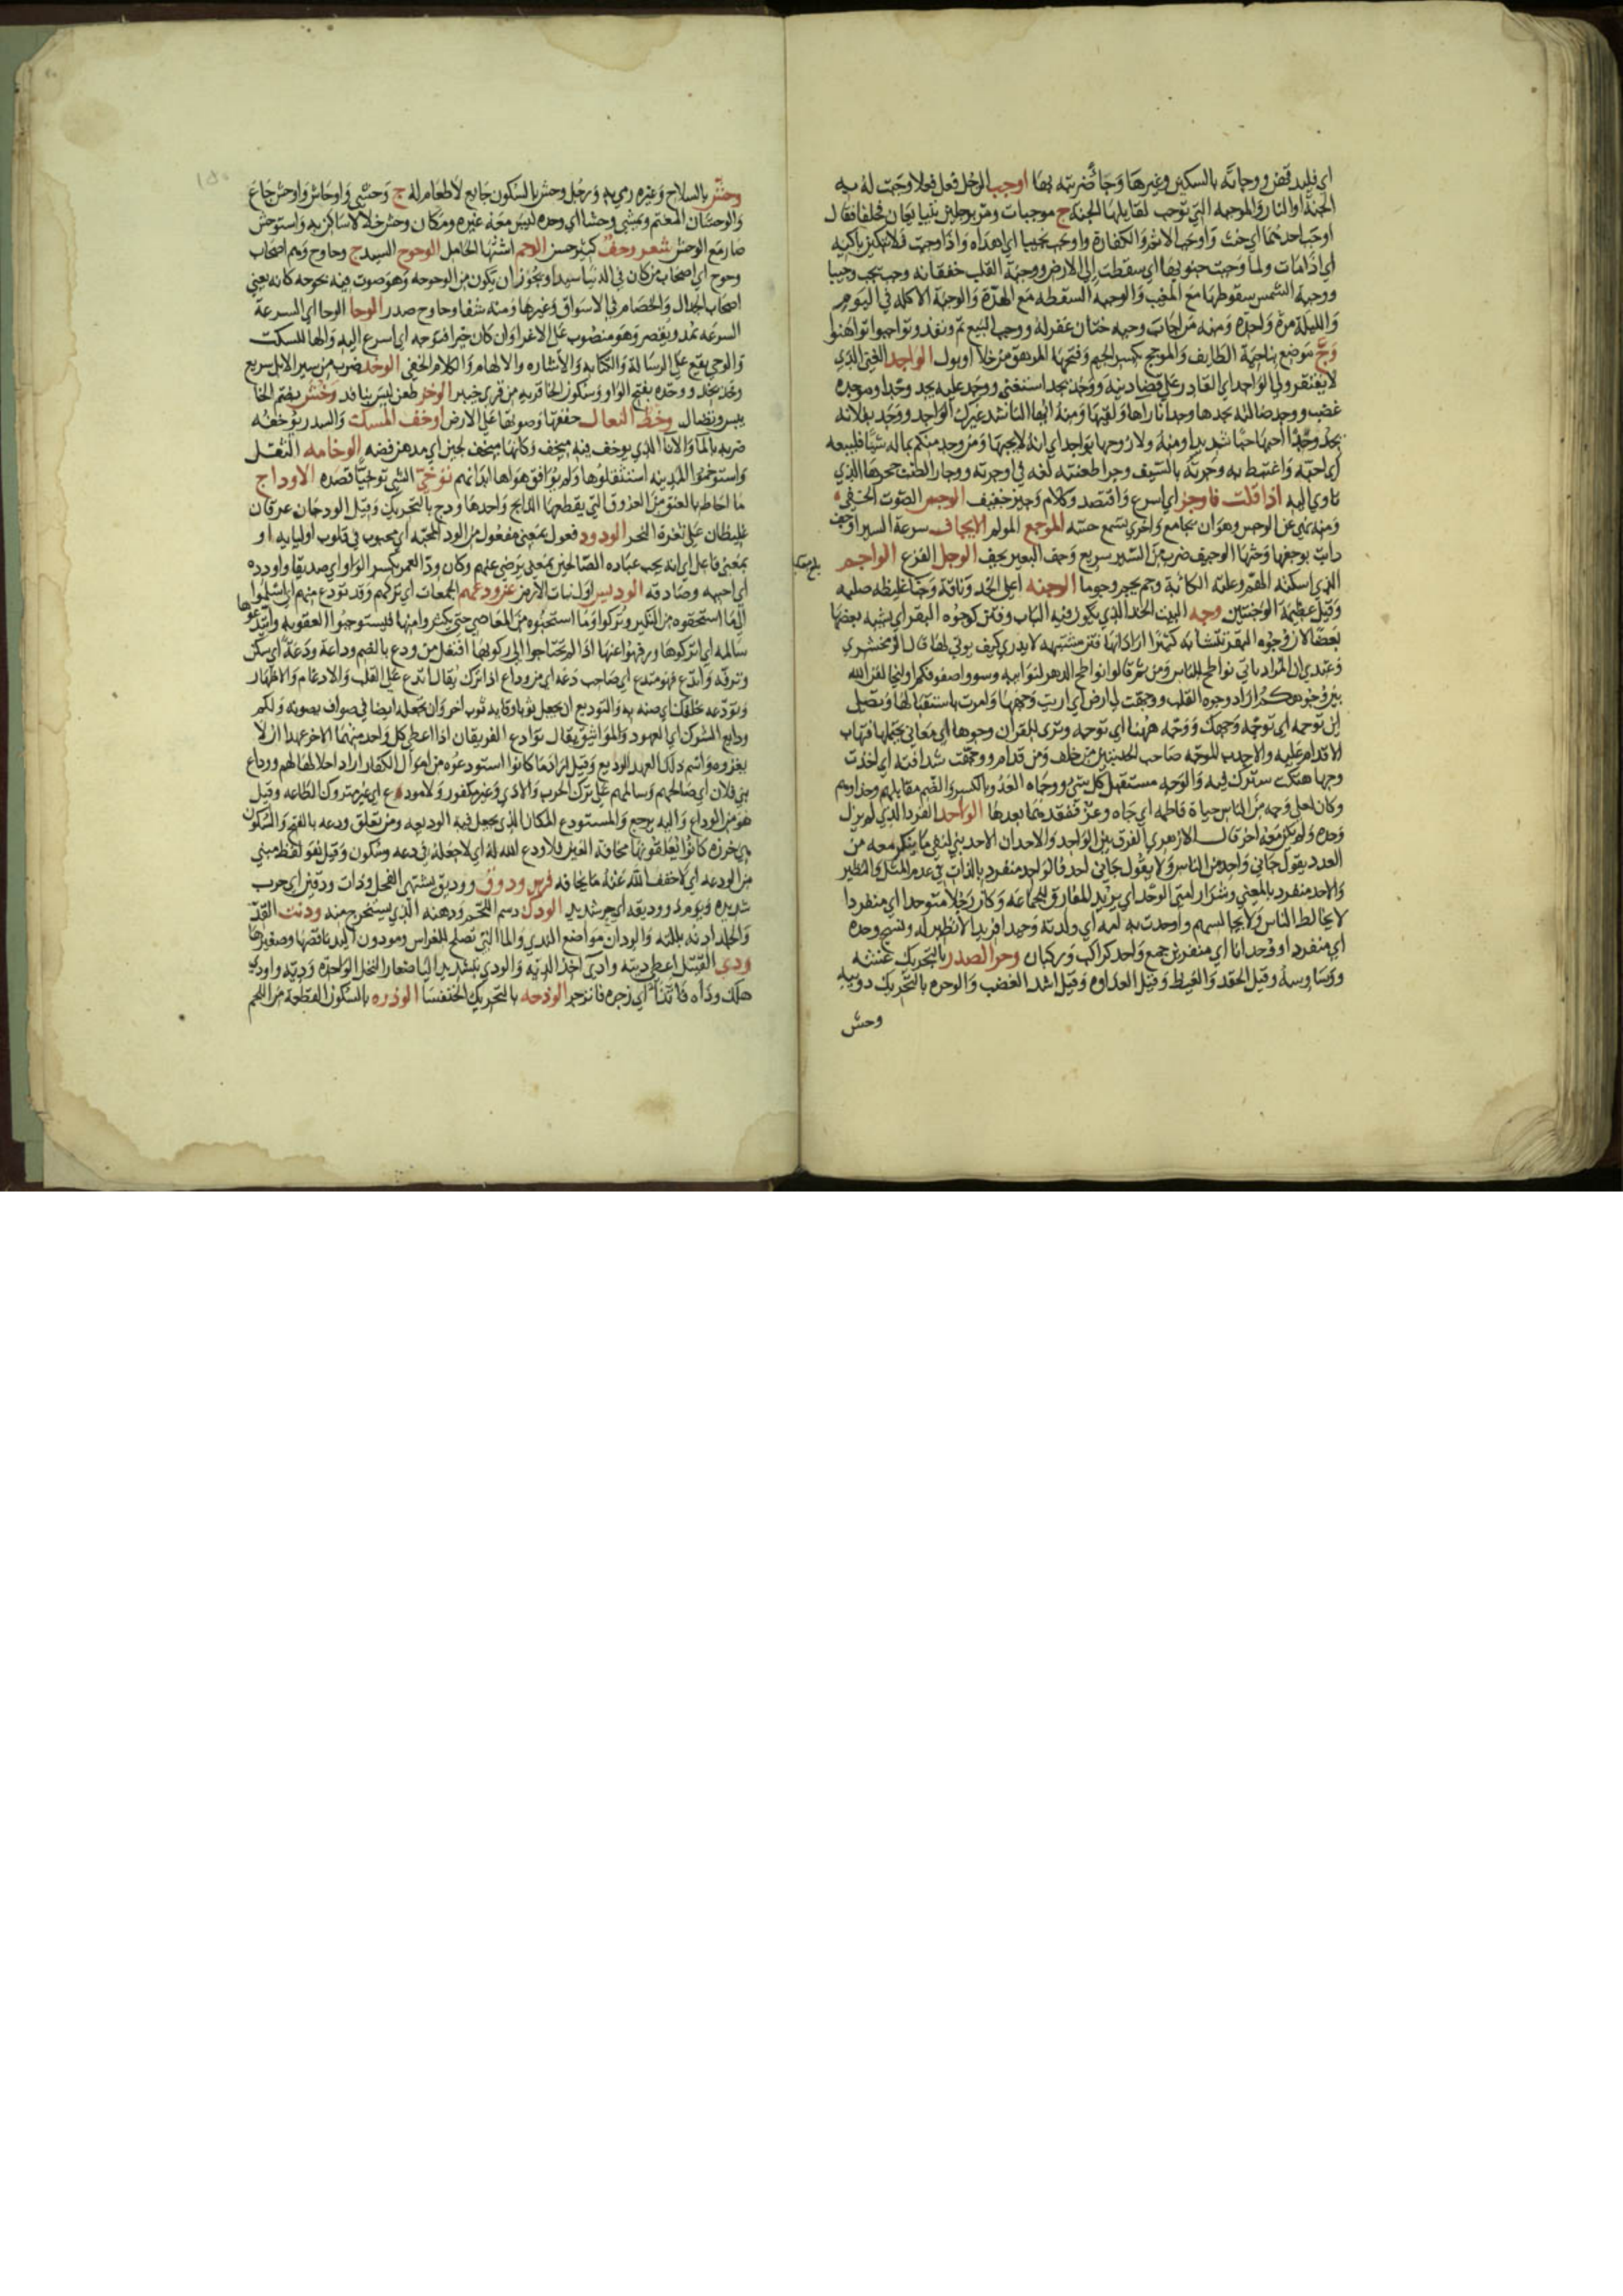 اي فليدقهن ووجاته بالسكين وغيرها وجا ضربته بها اوجب الرجل فعل فعلا وجبت له به
الجنة او النار والموجبة التي توجب لقايلها الجنة ج موجبات ومر برجلين يتبايعان فحلفا فقال
اوجب احدهما اي حنث واوجب الاثم والكفارة واوجب نجيبا اي اهداه واذا وجبت فلا تبكين باكية
اي اذا مات ولما وجبت جنوبها اي سقطت الى الارض ووجبة القلب خفقانه وجب يجب وجيبا
ووجبة الشمس سقوطها مع المغيب والوجبة السقطه مع الهدة والوجبة الاكلة في اليوم
والليلة مرة واحدة ومنه من اجاب وجبه ختان غفر له ووجب البيع تم ونفذ وتواجبوا تواهنوا
وج موضع بناحية الطايف والموجح بكسر الجيم وفتحها المرهق من خلا او بول الواجد الغني الذي
لا يفتقر ولي الواجد اي القادر على قضا دينه ووجد يجد استغنى ووجد عليه يجد وجدا وموجدة
غضب ووجد ضالته يجدها وجدانا راها ولقيها ومنه ايها الناشد غيرك الواجد ووجد بفلانه
يجد وجدا احبها حبا شديدا ومنه ولا زوجها بواجد اي انه لا يحبها ومن وجد منكم بماله شيا فليبعه
اي احبه واغتبط به ووجرته بالسيف وجرا طعنته لغه في اوجرته ووجار الضبع جحرها الذي
تاوي اليه اذا قلت فاوجز اي اسرع واقتصد وكلام وجيز خفيف الوجس الصوت الخفي
ومنه نهي عن الوجس وهو ان يجامع واخرى تسمع حسه الموجع المولم الايجاف سرعة السير اوجف
دابته يوجفها وحثها الوجيف ضرب من السير سريع وجف البعير يجف الوجل الفزع الواجم
الذي اسكته الهم وعلته الكابة وجم يجم وجوما الوجنه اعلى الخد وناقة وجنا غليظه صلبه
وقيل عظيمة الوجنتين وجه البيت الحد الذي يكون فيه الباب وفتن كوجوه البقر اي يشبه بعضها
بعضا لان وجوه البقر تتشابه كثيرا اراد انها فتن مشتبهه لا يدري كيف يوتى لها قال الزمخشري
وعندي ان المراد ياتي نواطح للناس ومن ثم قالوا نواطح الدهر لنوايبه وسووا صفوفكم او ليخالفن الله
بين وجوهكم اراد وجوه القلب ووجهت لي ارض اي اريت وجهها وامرت باستقبالها وتصلي
اين توجه اي توجه وجهك ووجه ههنا اي توجه وترى للقران وجوها اي معاني يحتملها فتهاب
الاقدام عليه
وجها هتكت سترك فيه والوجه مستقبل كل شي ووجاه العدو بالكسر والضم مقابلهم وحذاوهم
وكان لعلي وجه من الناس حياة فاطمه اي جاه وعز ففقدهما بعدها الواحد الفرد الذي لم يزل
وحده ولم يكن معه اخر قال الازهري الفرق بين الواحد والاحد ان الاحد بني لنفي ما يذكر معه من
العدد يقول ما جاني احد
والاحد منفرد بالمعنى وشرار امتي الوحداني يريد المفارق للجماعه وكان رجلا متوحدا اي منفردا
لا يخالط الناس ولا يجالسهم واوحدت به امه اي ولدته وحيدا فريدا لا نظير له ونسيج وحده
اي منفردا او وحدانا اي منفردين جمع واحد كراكب وركبان وحر الصدر بالتحريك غشه
ووساوسه وقيل الحقد والغيظ وقيل العداوه وقيل اشد الغضب والوحره بالتحريك دويبه
وحش
وحش بالسلاح وغيره رمى به ورجل وحش بالسكون جايع لا طعام له ج وحشي واوحاش واوحش جاع
والوحشان المغتم ويمشي وحشا اي وحده ليس معه غيره ومكان وحش خلا لا ساكن به واستوحش
صار مع الوحش شعر وحف كثير حسن الوحم اشتها الحامل الوحوح السيد ج وحاوح وهم اصحاب
وحوح اي اصحاب من كان في الدنيا سيدا ويجوز ان يكون من الوحوحه وهو صوت فيه بحوحه كانه يعني
اصحاب الجدال والخصام في الاسواق وغيرها ومنه شفا وحاوح صدر الوحا الوحا اي السرعة
السرعه تمد وتقصر وهو منصوب على الاغرا وان كان خيرا فتوحه اي اسرع اليه والها للسكت
والوحي يقع على الرسالة والكتابه والاشاره والالهام والكلام الخفي الوخد ضرب من سير الابل سريع
وخد يخد ووخده بفتح الواو وسكون الخا قريه من قرى خيبر الوخز طعن ليس بنافذ وخش بضم الخا
يبس وتضال وخط النعال خفقها وصوتها على الارض اوخف المسك والسدر يوخفه
ضربه بالما والانا الذي يوخف فيه ميخف وكانها ميخف لجين اي مدهن فضه الوخامه الثقل
واستوخموا المدينه استثقلوها ولم يوافق هواها ابدانهم توخى الشي توخيا قصده الاوداج
ما احاط بالعنق من العروق التي يقطعها الذابح واحدها ودج بالتحريك وقيل الودجان عرقان
غليظان على ثغرة النحر الودود فعول بمعنى مفعول من الود المحبه اي محبوب في قلوب اوليايه او
بمعنى فاعل اي انه يحب عباده الصالحين بمعنى يرضى عنهم وكان ود العمر بكسر الواو اي صديقا واودده
اي احبه وصادقه الوديس اول نبات الارض عن ودعهم الجمعات اي تركهم وقد تودع منهم اي اسلموا
الى ما استحقوه من النكير وتركوا وما استحبوه من المعاصي حتى يكثروا منها فليستوجبوا العقوبه وايتدعوها
سالمه اي اتركوها ورفهوا عنها اذا لم تحتاجوا الى ركوبها افتعل من ودع بالضم وداعة ودعة اي سكن
وترفه وايتدع فهو متدع اي صاحب دعه اي من وداع اذا ترك يقال اتدع على القلب والادغام والاظهار
وتودعه خلقك اي صنه به والتوديع ان يجعل ثوبا وقاية ثوب اخر وان تجعله ايضا في صوان يصونه ولكم
ودايع الشرك اي العهود والمواثيق يقال توادع الفريقان اذا اعطى كل واحد منهما الاخر عهدا ان لا
يغزوه واسم ذلك العهد الوديع وقيل اراد ما كانوا استودعوه من اموال الكفار اراد احلالها لهم ووداع
بني فلان اي صالحهم وسالمهم على ترك الحرب والاذى وغير مكفور ولا مودع اي غير متروك الطاعه وقيل
هو من الوداع واليه يرجع والمستودع المكان الذي يجعل فيه الوديعه ومن تعلق ودعه بالفتح والسكون
هي خرزه كانوا يعلقونها مخافة العين فلا ودع الله له اي لا جعله في دعه وسكون وقيل هو لفظ مبني
من الودعه اي لا خفف الله عنه ما يخافه فرس ودوق ووديق تشتهي الفحل وذات ودقين اي حرب
شديده ويوم ذو وديقه اي حر شديد الودك دسم اللحم ودهنه الذي يستخرج منه ودنت القد
والجلد ادنه بللته والودان مواضع الندى والما التي تصلح للغراس ومودون اليد ناقصها وصغيرها
ودى القتيل اعطى ديته واتدى اخذ الديه والودي بتشديد اليا صغار النخل الواحده وديه واودى
هلك وذاه فاتذا اي زجره فانزجر الوذحه بالتحريك الخنفسا الوذره بالسكون القطعة من اللحم